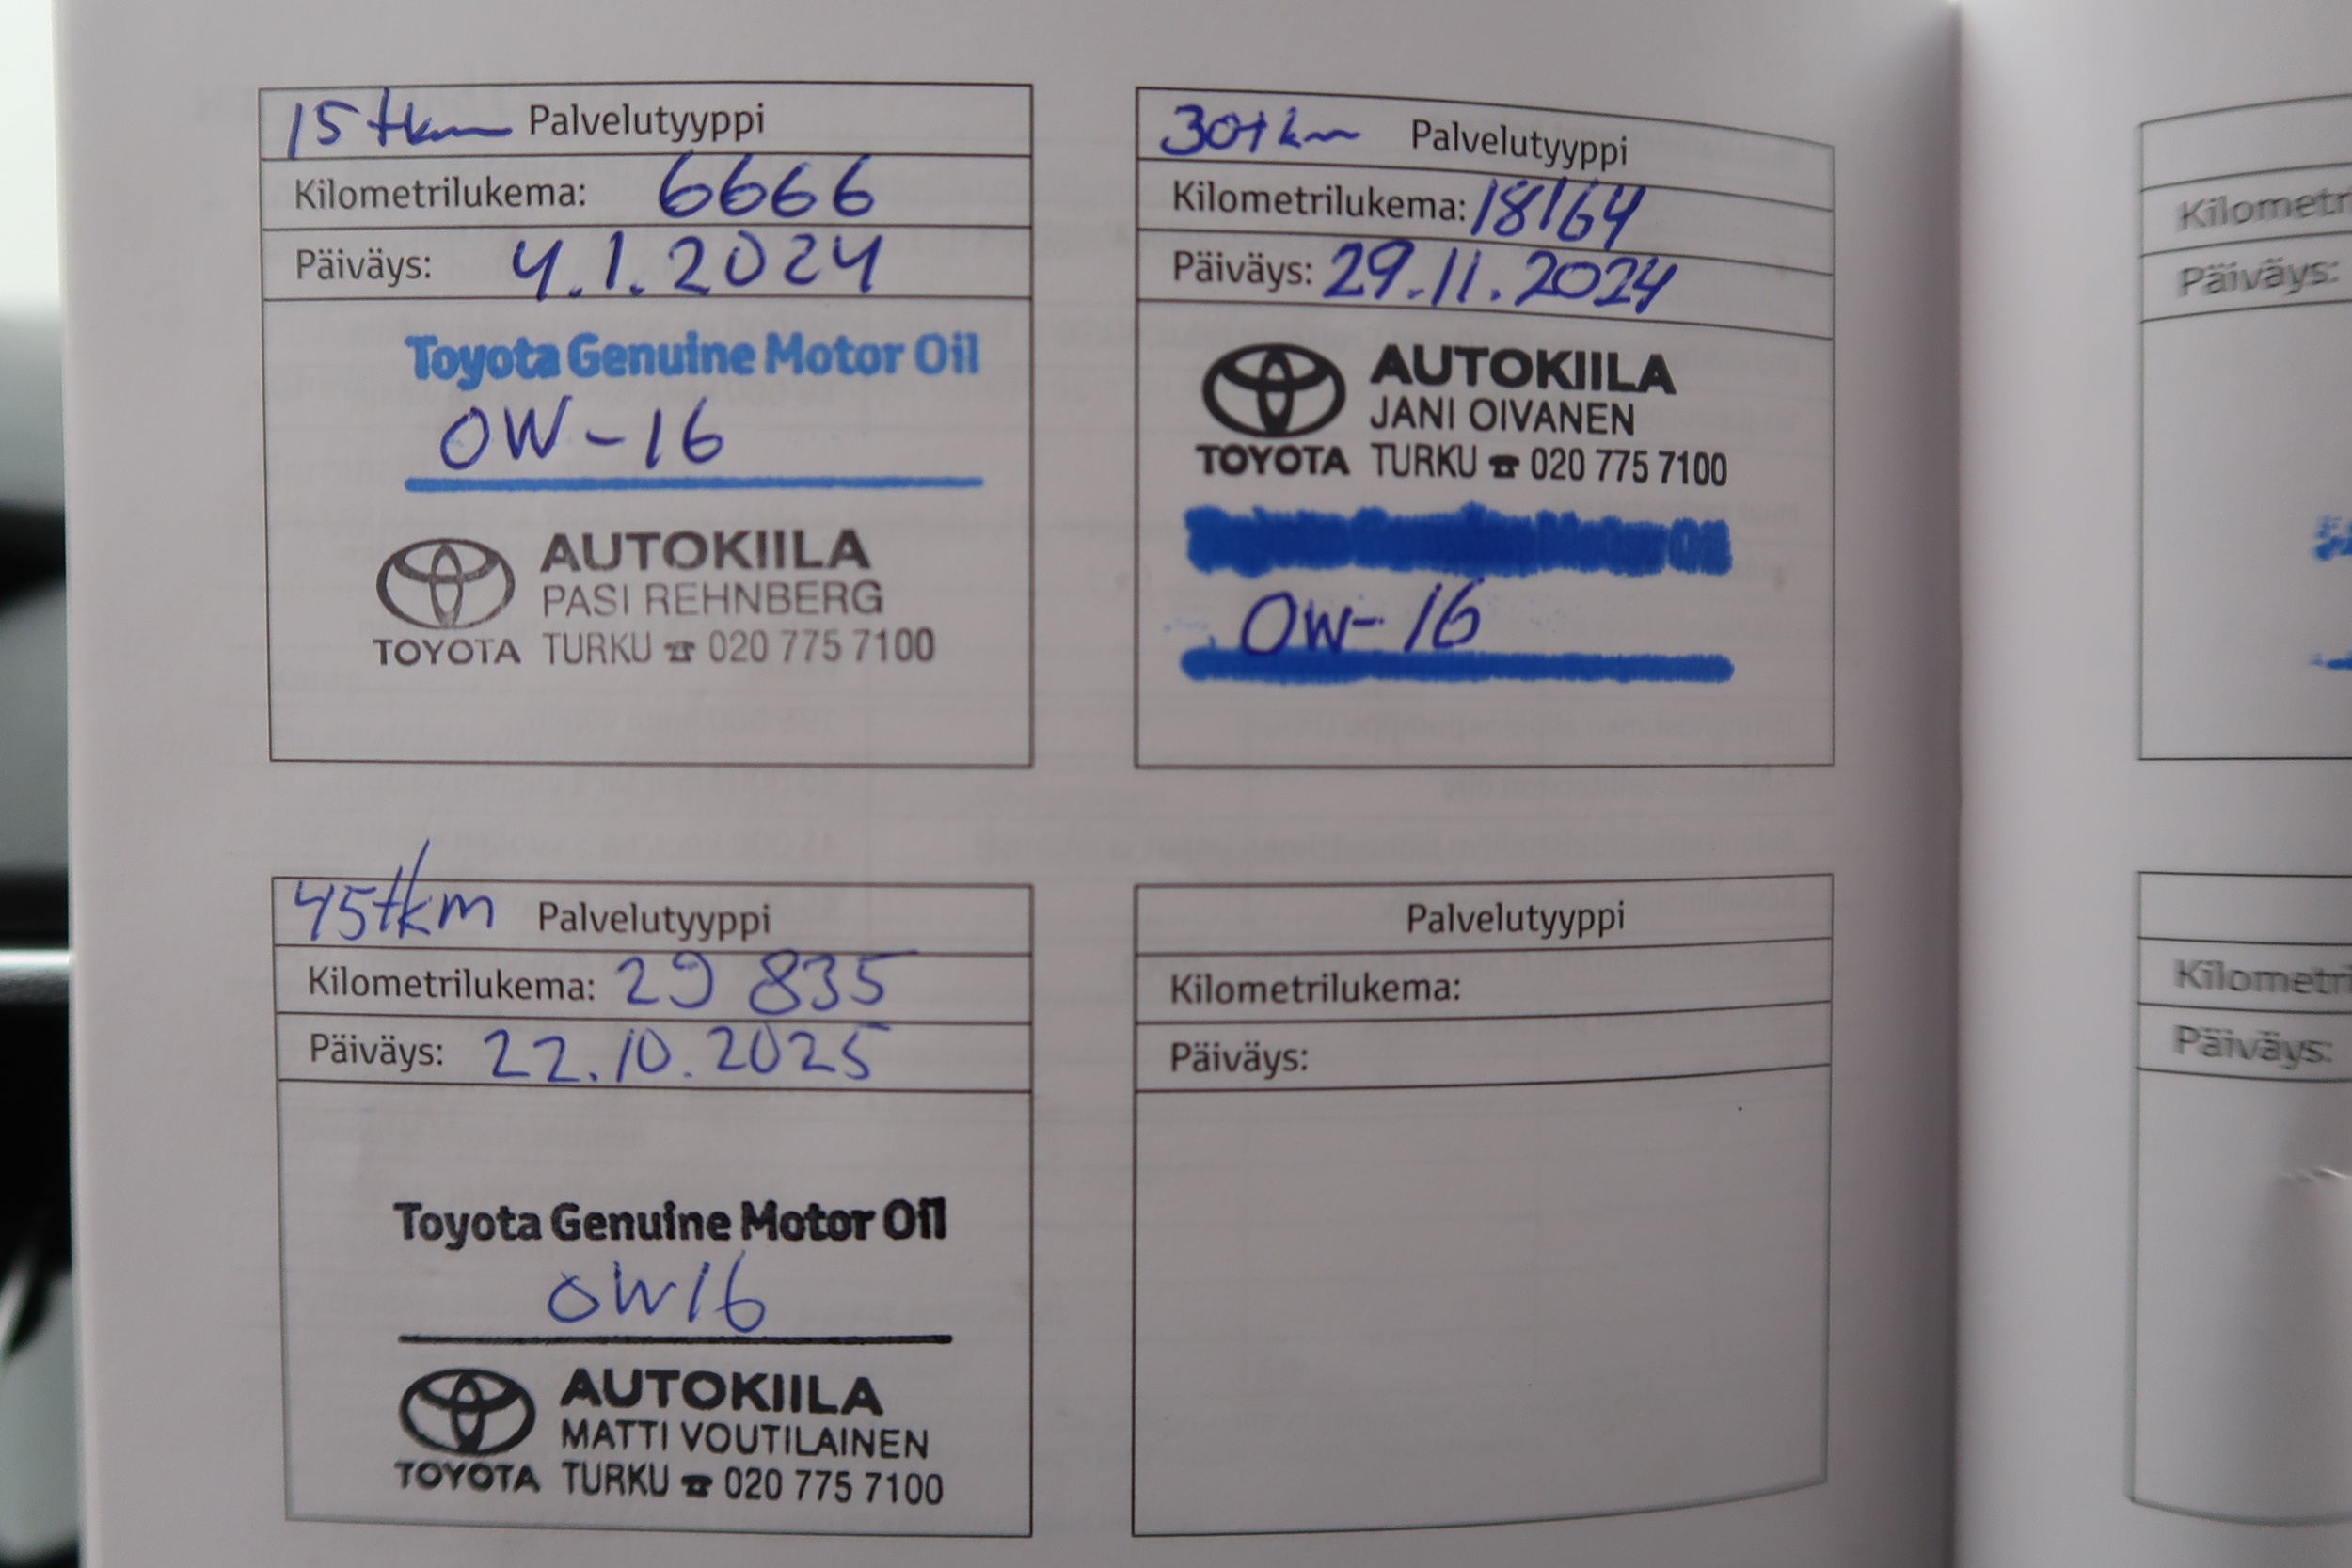 15 tkm Palvelutyyppi
Kilometrilukema: 6666
Päiväys: 4.1.2024
Toyota Genuine Motor Oil
0W-16
AUTOKIILA
PASI REHNBERG
TOYOTA TURKU ☎ 020 775 7100
30tkm Palvelutyyppi
Kilometrilukema: 18164
Päiväys: 29.11.2024
AUTOKIILA
JANI OIVANEN
TOYOTA TURKU ☎ 020 775 7100
Toyota Genuine Motor Oil
0W-16
45tkm Palvelutyyppi
Kilometrilukema: 29 835
Päiväys: 22.10.2025
Toyota Genuine Motor Oil
0W16
AUTOKIILA
MATTI VOUTILAINEN
TOYOTA TURKU ☎ 020 775 7100
Palvelutyyppi
Kilometrilukema:
Päiväys:
Kilometri
Päiväys:
Kilometri
Päiväys: